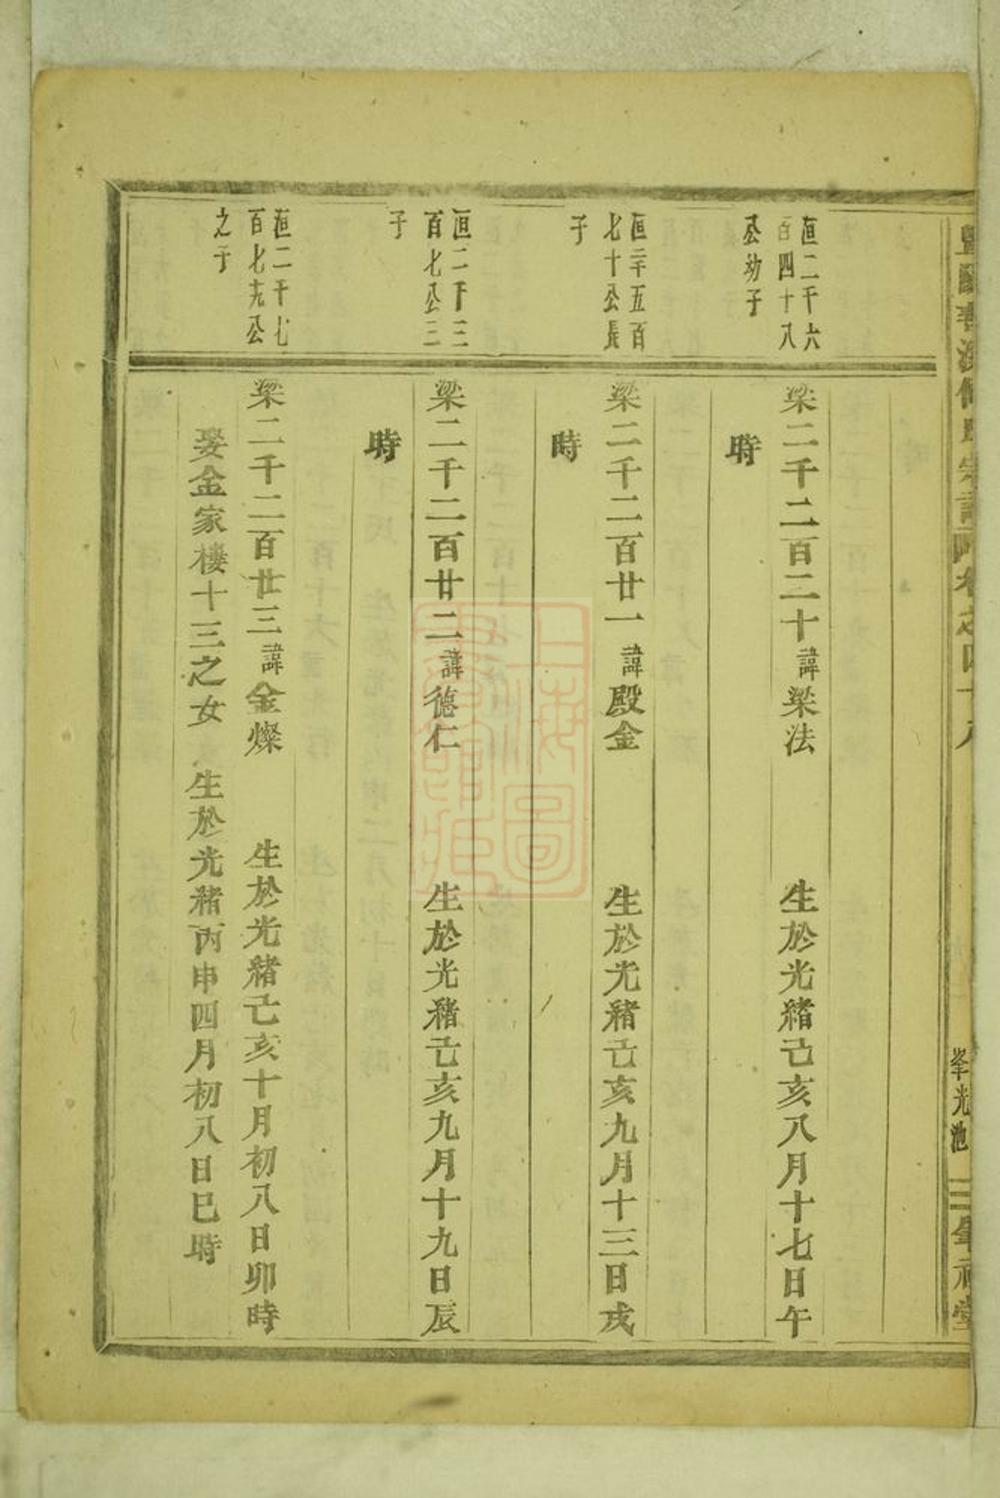 峯光池
恒二千六
百四十八
公幼子
梁二千二百二十諱梁法 生於光緒己亥八月十七日午
時
恒二千五百
七十公長
子
梁二千二百廿一諱殿金 生於光緒己亥九月十三日戌
時
恒二千三
百七公三
子
梁二千二百廿二諱德仁 生於光緒己亥九月十九日辰
時
恒二千七
百七十六公
之子
梁二千二百廿三諱金燦 生於光緒己亥十月初八日卯時
娶金家樓十三之女 生於光緒丙申四月初八日巳時